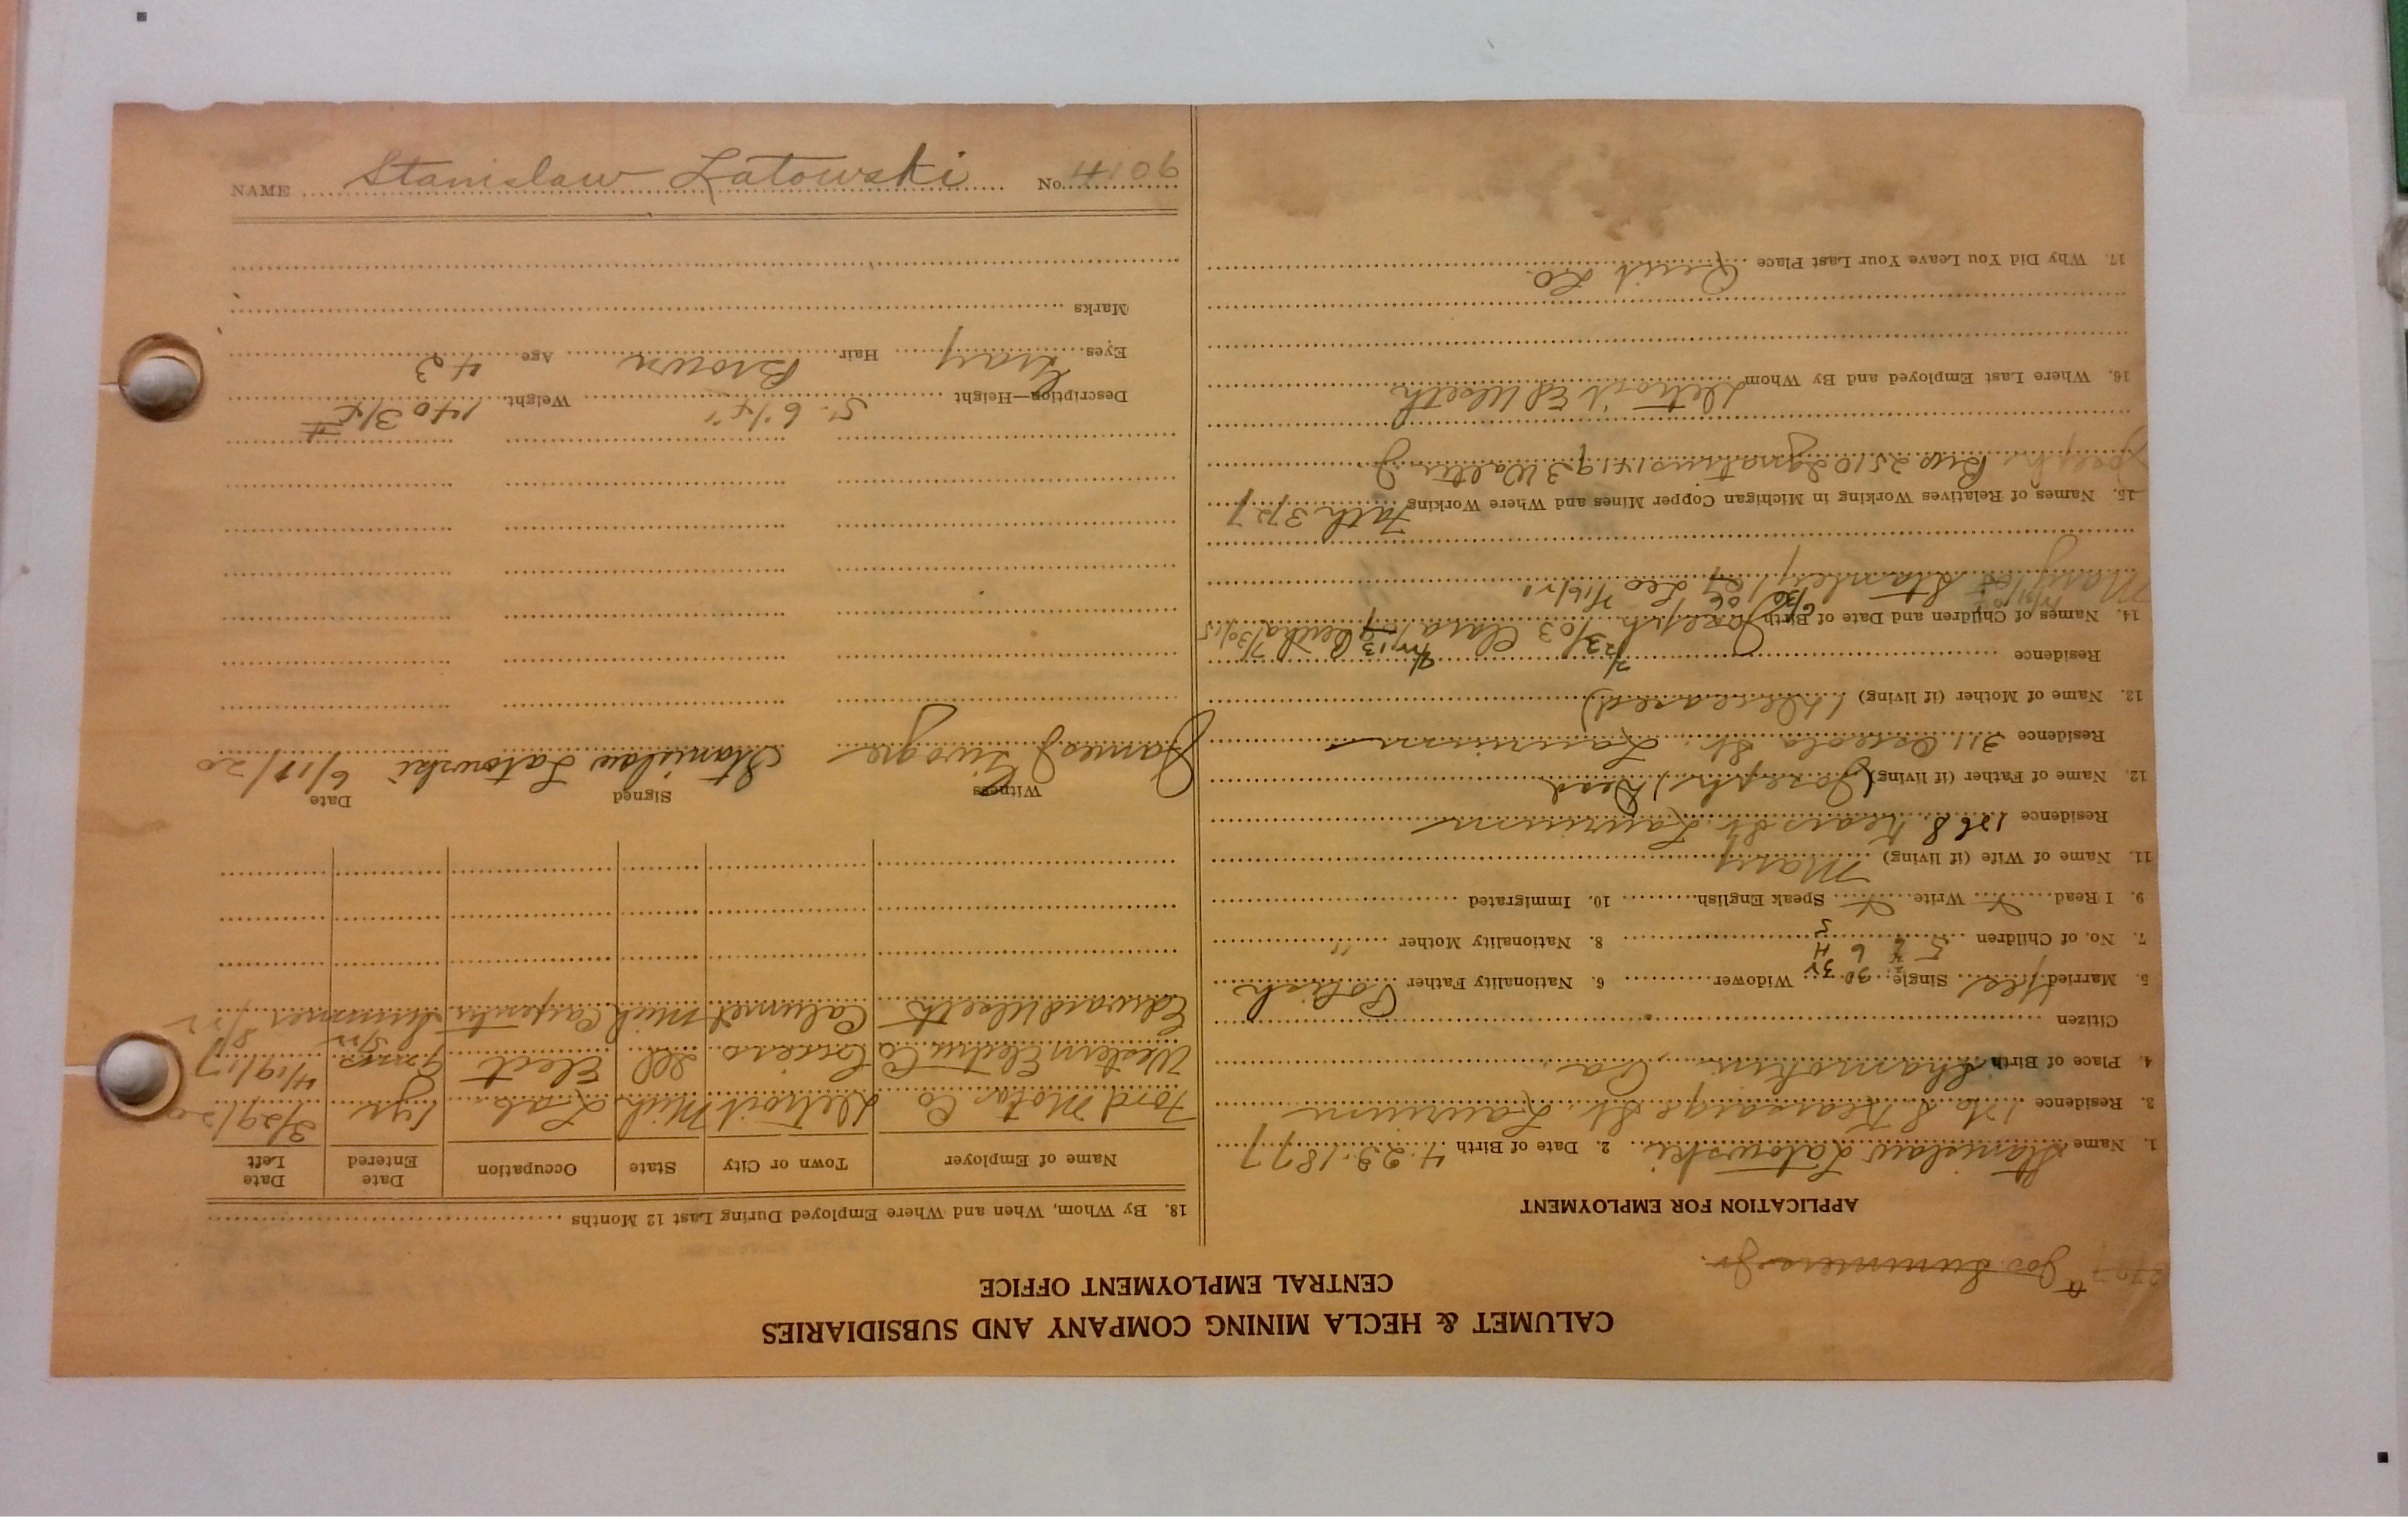 CALUMET & HECLA MINING COMPANY AND SUBSIDIARIES
CENTRAL EMPLOYMENT OFFICE
Jos. Summers Jr.
APPLICATION FOR EMPLOYMENT
1. Name Stanislaw Latowski 2. Date of Birth 4.23.1877
3. Residence Kearsarge St. Laurium
4. Place of Birth Shamokin, Pa
Citizen
5. Married Yes Single Widower 6. Nationality Father Polish
7. No. of Children 8. Nationality Mother "
9. I Read Write Speak English 10. Immigrated
11. Name of Wife (if living) Mary
Residence Kears St. Laurium
12. Name of Father (if living) (Joseph) Dead
Residence 311 Osceola St. Laurium
13. Name of Mother (if living) (Deceased)
Residence
14. Names of Children and Date of Birth Joseph Clara
Mary Stanley Leo 7/16/21
15. Names of Relatives Working in Michigan Copper Mines and Where Working Fath. 3727
Joseph Bro 2510 Ignatius 14193 Walter J
16. Where Last Employed and By Whom Detroit Ed Ulseth
17. Why Did You Leave Your Last Place Quit Co.
18. By Whom, When and Where Employed During Last 12 Months
Name of Employer Town or City State Occupation Date Entered Date Left
Ford Motor Co Detroit Mich Lab. 1 yr 3/29/20
Western Electric Co Ill Elect 4/19/17
Edward Ulseth Calumet Mich Carpenter Summer
Witness Signed Date
James J Stanislaw Latowski 6/18/20
Description—Height 5' 6 1/4" Weight 140 3/4 #
Eyes Gray Hair Brown Age 43
Marks
NAME Stanislaw Latowski No. 4106